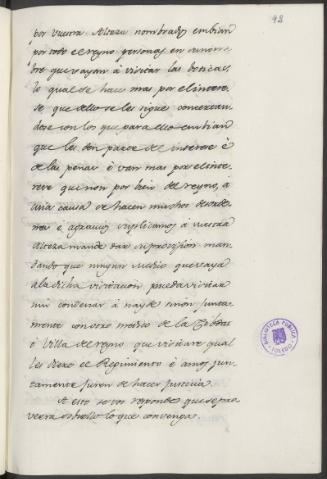 48
por vuestra Alteza nombrados embian
por todo el reyno personas en su nom-
bre que vayan á visitar las boticas,
lo qual se hace mas por el interes
se que dello se les sigue concertan-
dose con los que para ello embian
que les den parte del interese é
de las penas é van mas por el inte-
rese que non por bien del reyno, á
cuia causa se hacen muchos desorde-
nes é agravios suplicamos á vuestra
Alteza mande dar su provision man-
dando que ningun medico que vaya
a la dicha visitacion pueda visitar
nin condenar á nayde sinon junta-
mente con otro medico de la Cibdad
é Villa del reyno que visitare qual
les diere el Regimiento é amos jun-
tamente juren de hacer justicia.
A esto se vos responde que se pro-
veera sobrello lo que convenga.
BIBLIOTECA PUBLICA
TOLEDO